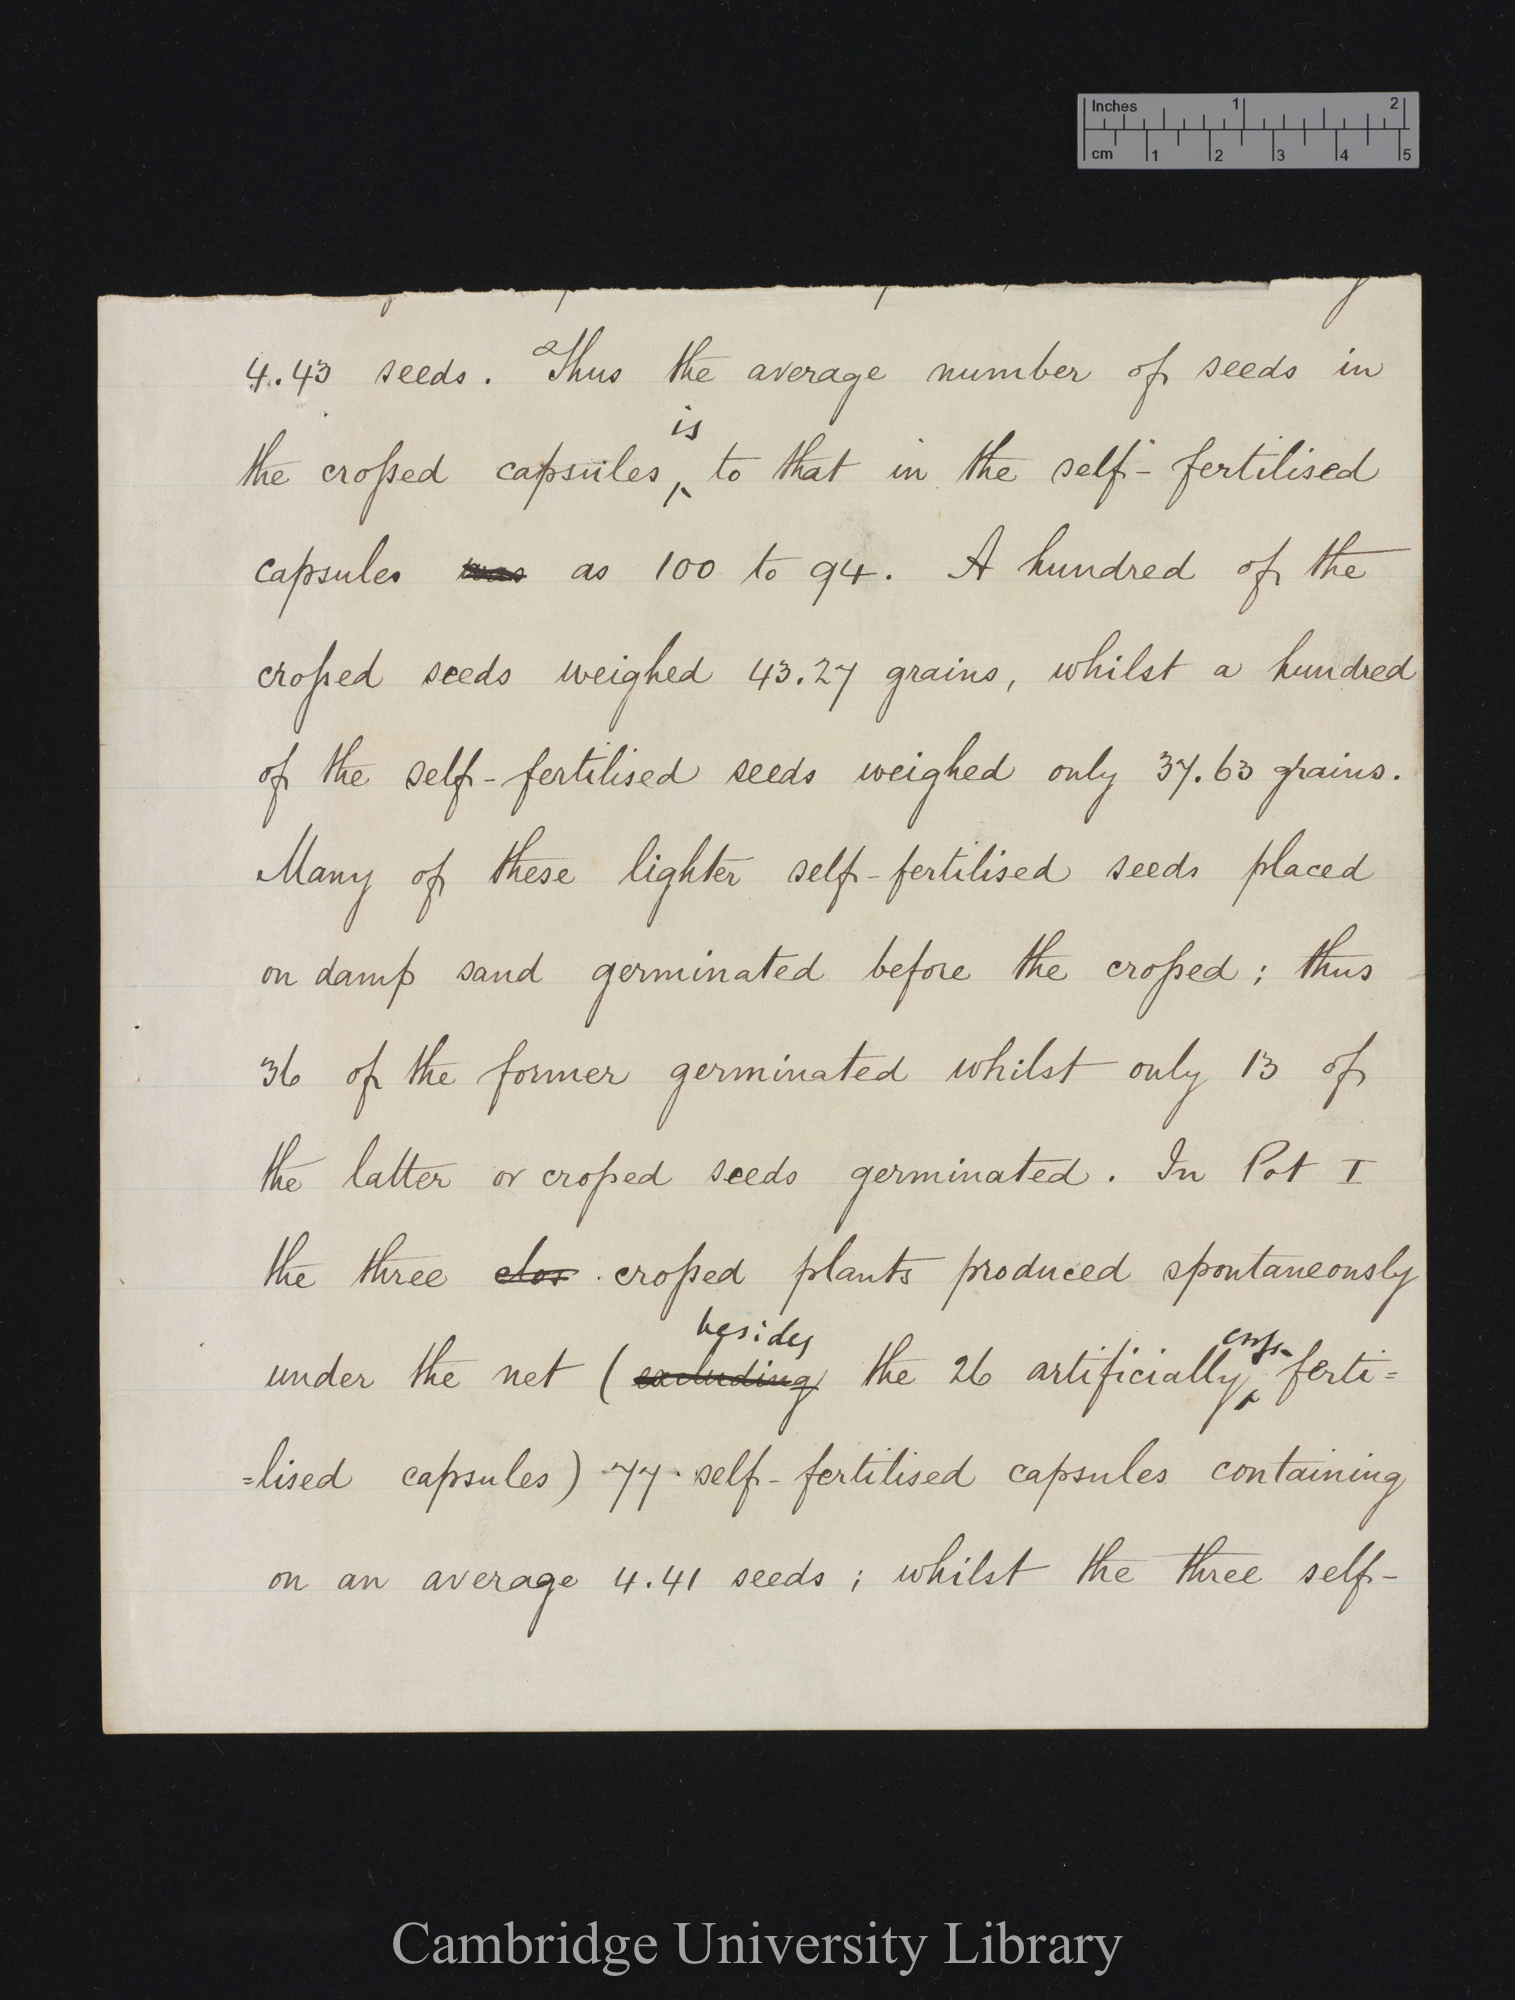 Inches 1 2
cm 1 2 3 4 5
4.43 seeds. Thus the average number of seeds in
is
the croſsed capsules, ‸ to that in the self-fertilised
capsules was as 100 to 94. A hundred of the
croſsed seeds weighed 43.27 grains, whilst a hundred
of the self-fertilised seeds weighed only 37.63 grains.
Many of these lighter self-fertilised seeds placed
on damp sand germinated before the croſsed; thus
36 of the former germinated whilst only 13 of
the latter or croſsed seeds germinated. In Pot I
the three clos croſsed plants produced spontaneously
besides cross-
under the net (excluding the 26 artificially ‸ ferti=
=lised capsules) 77 self-fertilised capsules containing
on an average 4.41 seeds; whilst the three self-
Cambridge University Library